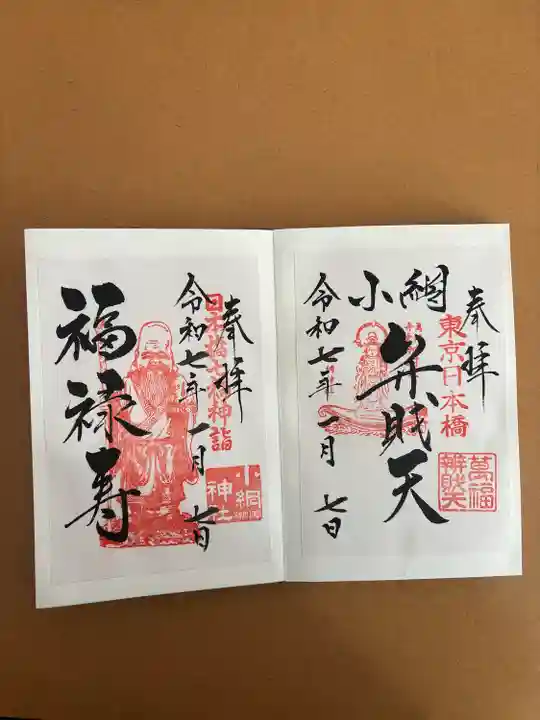 奉拝
東京日本橋
萬福
辨財天
小網
弁財天
令和七年一月七日
奉拝
日本橋七福神詣
小網
神社
福禄寿
令和七年一月七日